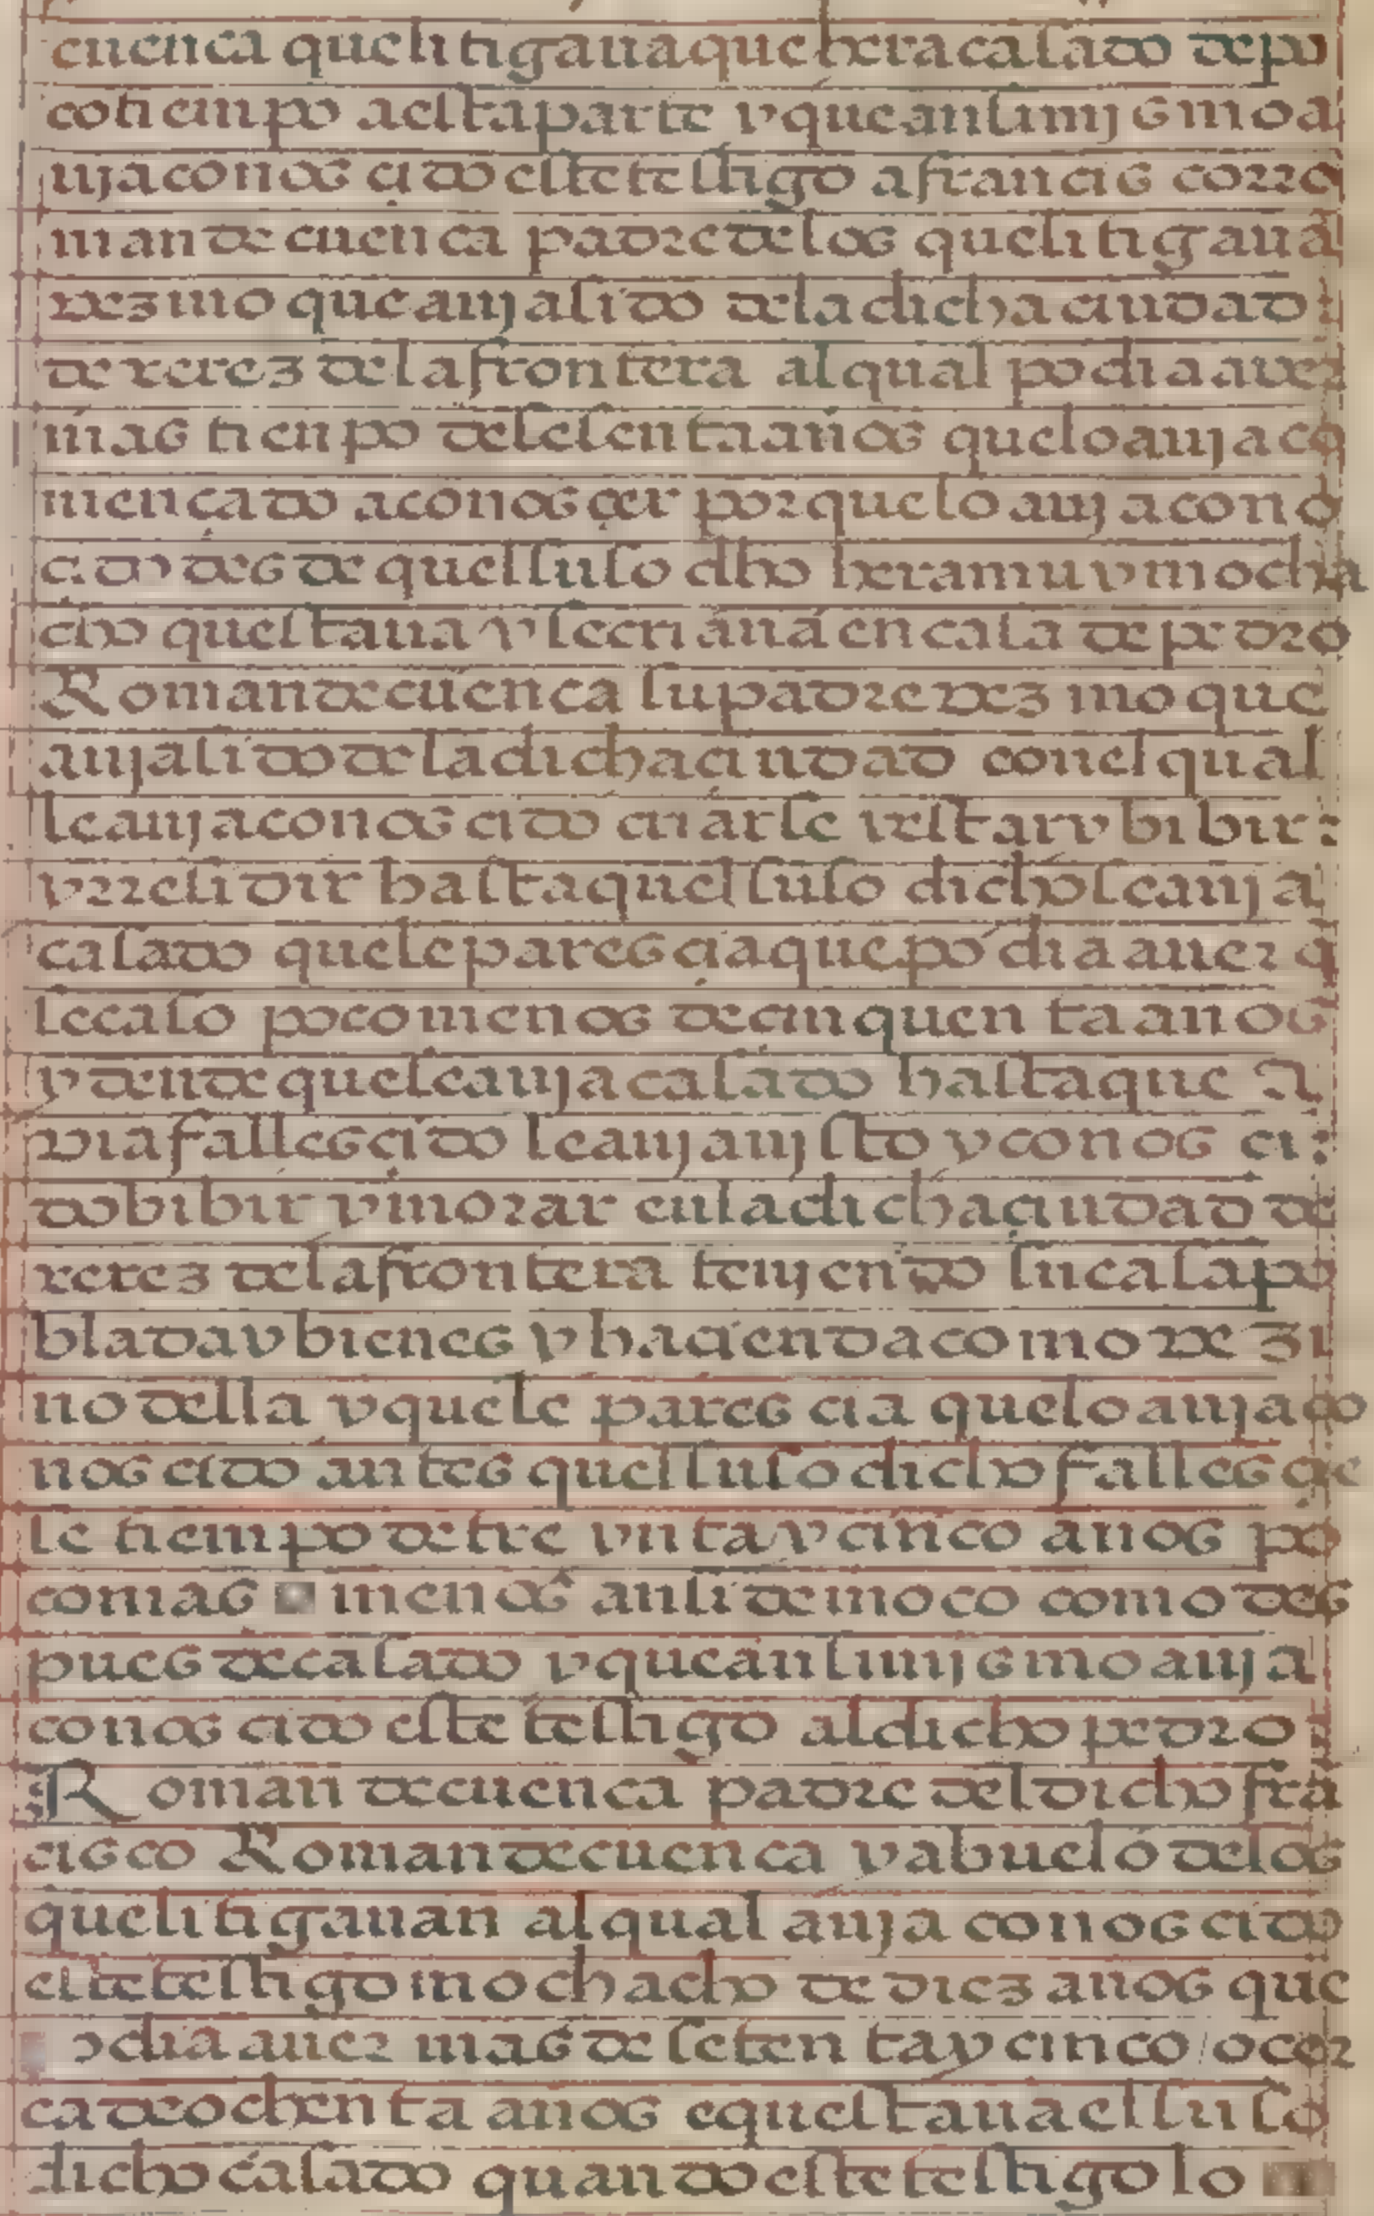 cuenca que litigaua que hera casado de po
co tiempo a esta parte y que ansi mijsmo a
uja conoscido este testigo a francisco rro
man de cuenca padre de los que litigauã
vezino que auja sido de la dicha ciudad
de xerez de la frontera al qual podia aver
mas tienpo de sesenta años que lo auja co
mençado a conosçer porque lo auja cono
cido desde quel suso dho hera muy mocha
cho questaua y se criaua en casa de pedro
Roman de cuenca su padre vezino que
auja sido de la dicha çiudad con el qual
le auja conoscido criarse y estar y bibir:
y rresidir hasta quel suso dicho se auja
casado que le paresçia que podia auer q̃
se caso poco menos de cinquenta años
y dende que se auja casado hasta que a
via fallesçido le auja uisto y conosci:
do bibir y morar en la dicha çiudad de
xerez de la frontera tenjendo su casa po
blada y bienes y hacienda como vezi
no della y que le parescia que lo auja co
noscido antes quel suso dicho fallesçie
se tiempo de treynta y cinco años po
co mas menos ansi de moço como des
pues de casado y que ansi mijsmo auja
conoscido este testigo al dicho pedro
Roman de cuenca padre del dicho frã
cisco Roman de cuenca y abuelo de los
que litigauan al qual auja conoscido
este testigo mochacho de diez años que
podia auer mas de setenta y cinco / o cer
ca de ochenta años e questaua el suso
dicho casado quando este testigo lo